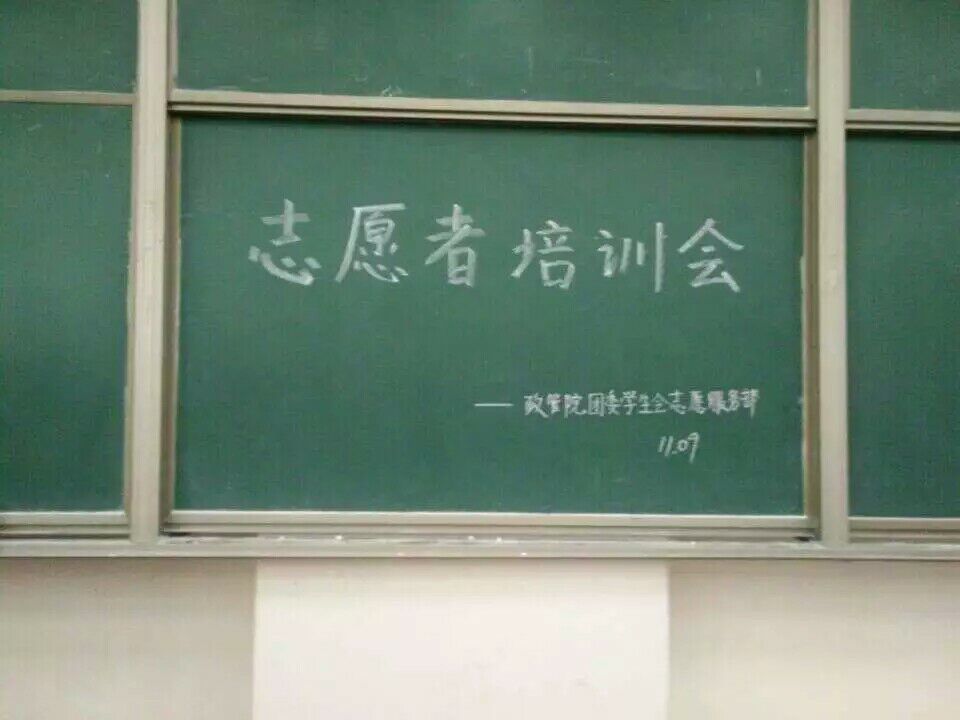 志愿者培训会
——政管院团委学生会志愿服务部
11.09